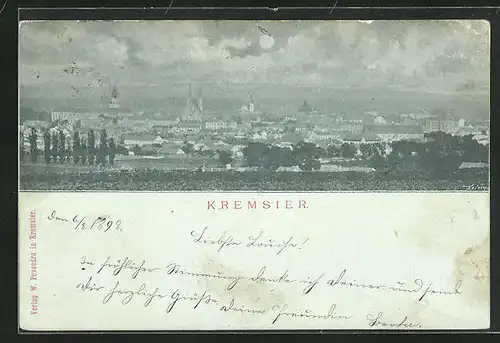 KREMSIER.
Verlag W. Povondra in Kremsier.
den 6/8. 1898.
Liebste Louise!
In fröhlicher Stimmung denke ich Deiner und sende
Dir herzliche Grüße Deine Freundin Berta.